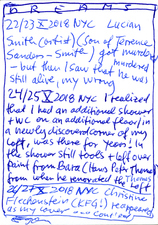 DREAMS
22/23 X 2018 NYC Lucian
Smith (artist) (son of Terence
Sanders - Smith) got murdered
- but then I saw that he was
still alive, my wrong
24/25 X 2018 NYC I realized
that I had an additional shower
+ WC on an additional floor/in
a newly discovered corner of my
Loft, was there for years! In
the shower still tools + left over
paint from Bara (Hans Peter Thomas)
from when he renovated the Loft
24/27 X 2018 NYC Christine
Flechenstein (KFG!) reappeared
as my lover